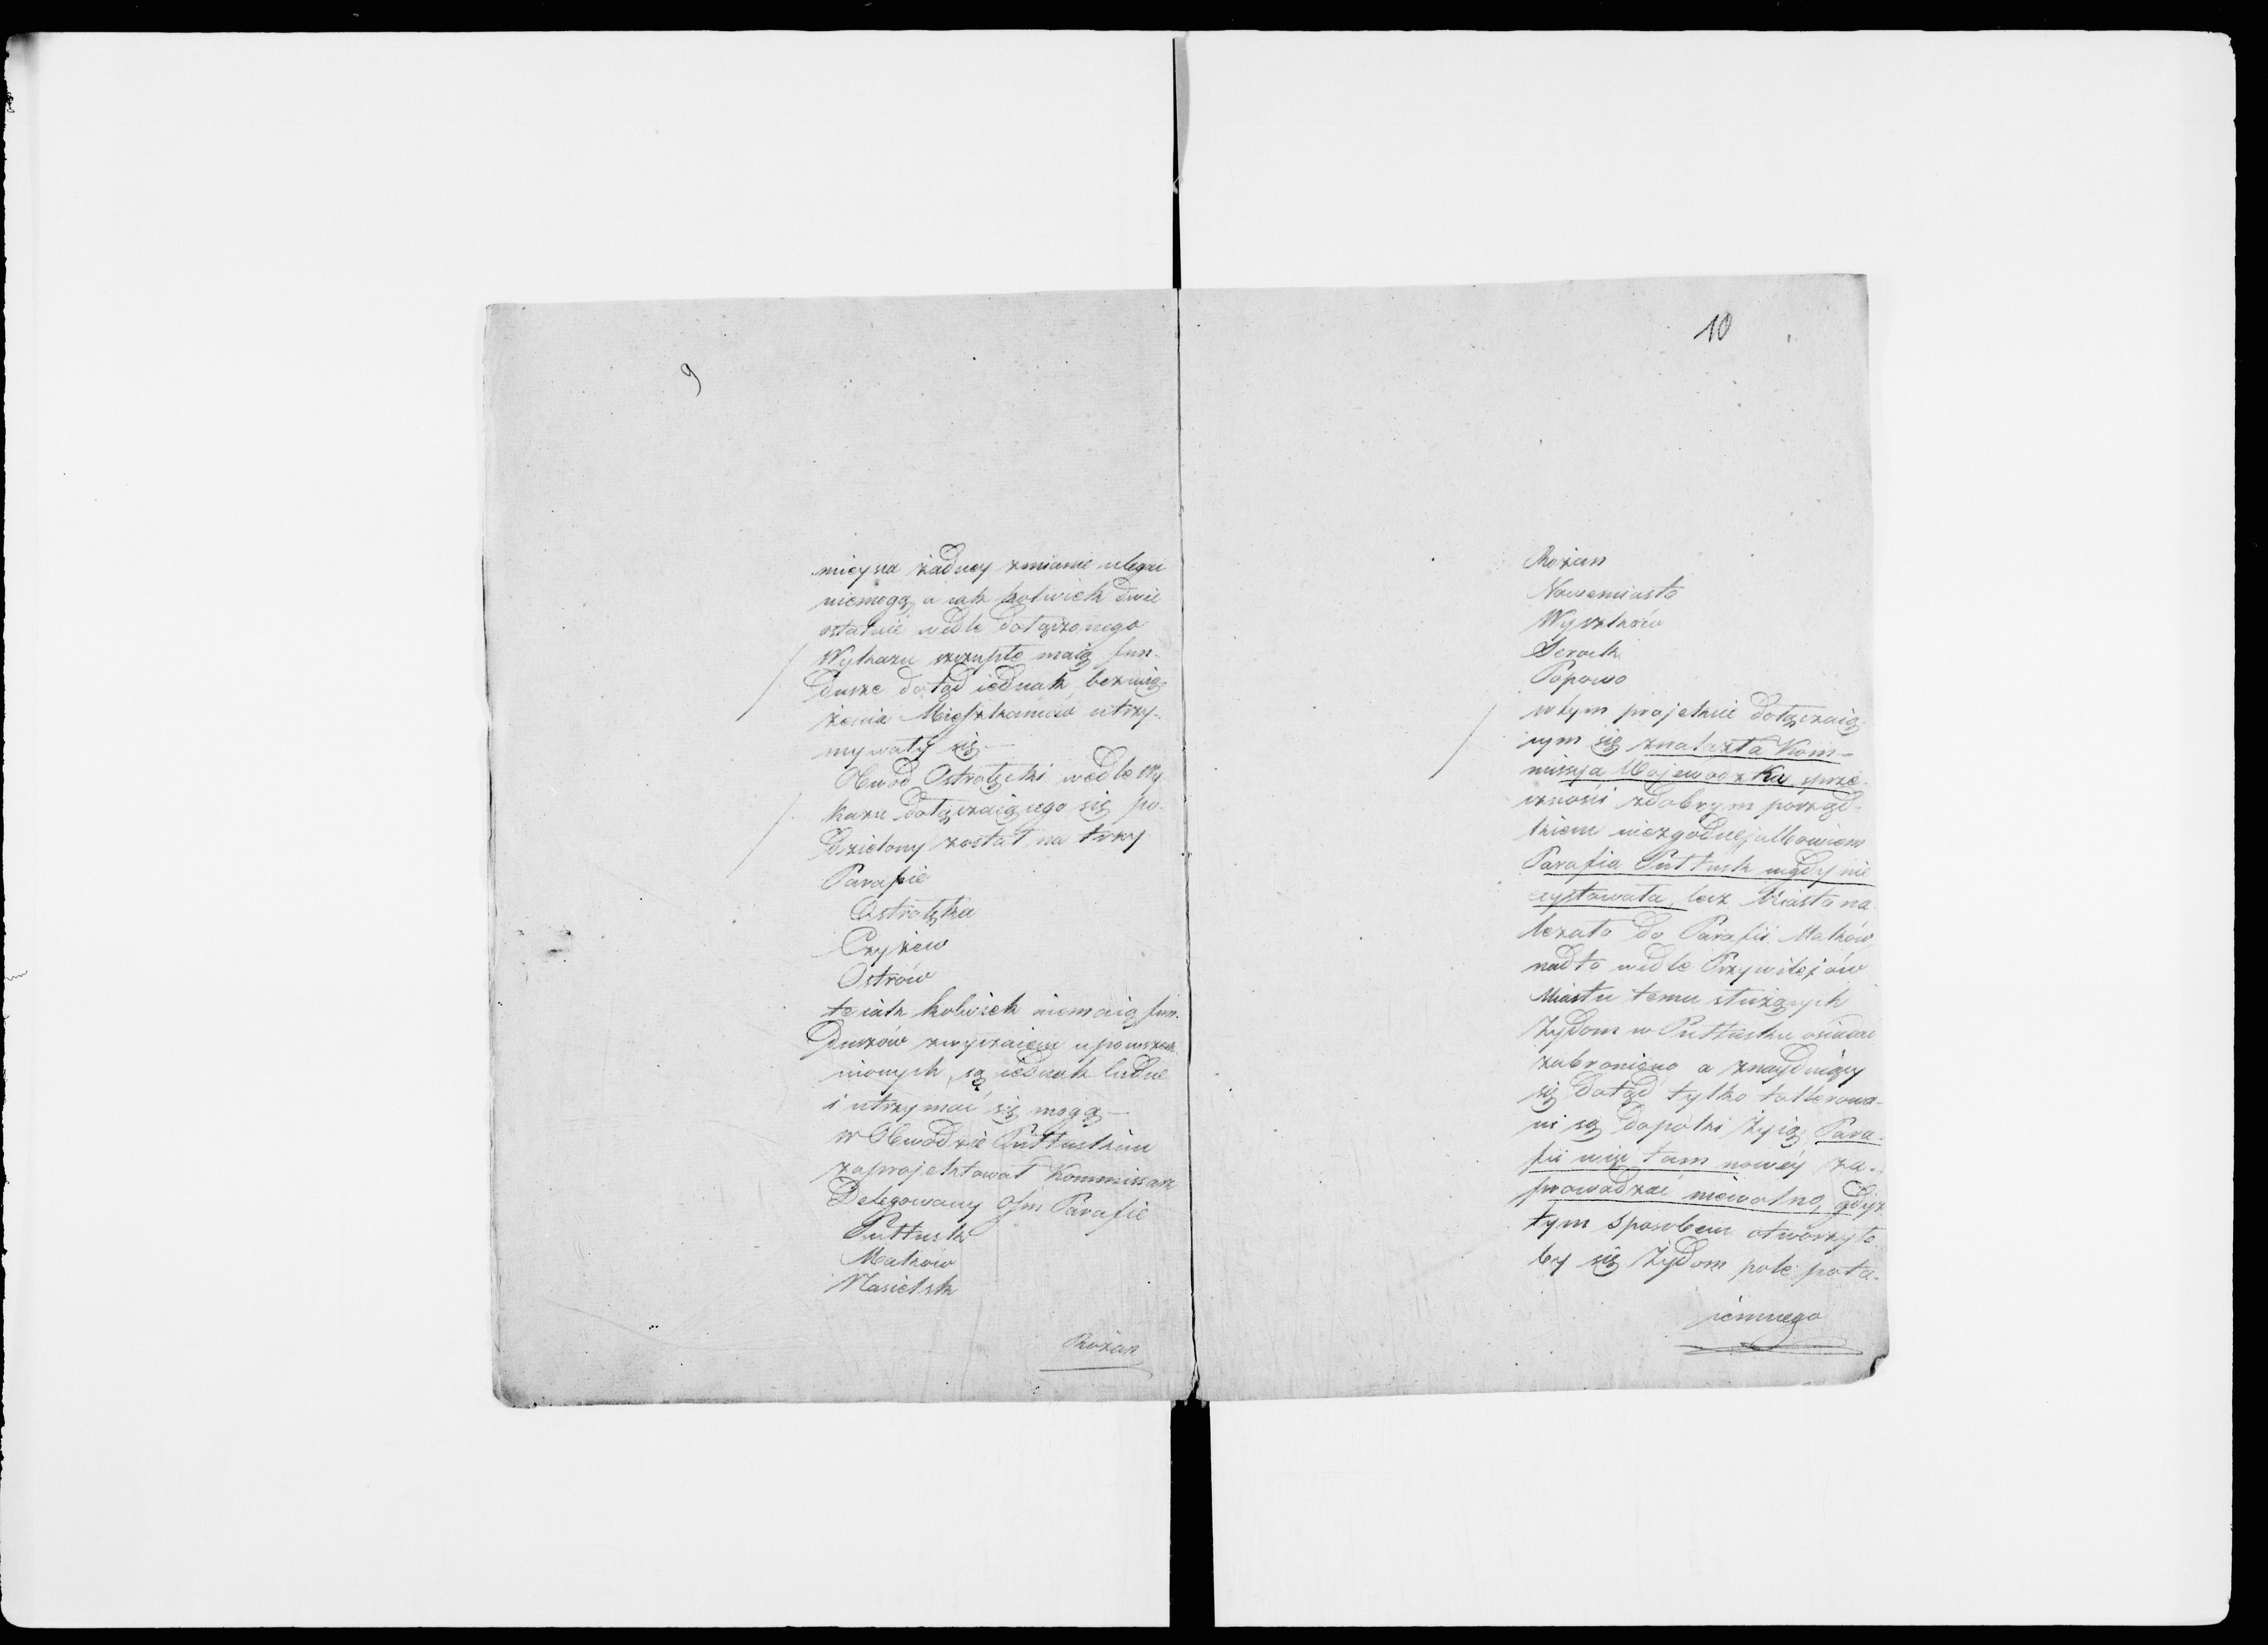 9
mieysca żadney zmianie uledz
niemogą, a iak kolwiek dwie
ostatnie wedle dołączonego
Wykazu szczupłe maią fun-
dusze dotąd iednak bez ucią
żenia Mieszkańców utrzy-
mywały się —
Obwód Ostrołęcki wedle Wy-
kazu dołączaiącego się po-
dzielony został na trzy
Parafie
Ostrołęka
Czyżew
Ostrów
te iak kolwiek niemaią fun-
duszów zwyczaiem upowszech
nionych, są iednak ludne
i utrzymać się mogą —
w Obwodzie Pułtuskim
zaprojektował Kommissarz
Delegowany Ośm Parafie
Pułtusk
Maków
Nasielsk
Rożan
10
Rożan
Nowemiasto
Wyszków
Serock
Popowo
w tym projekcie dołączaią
cym się znalazła Kom-
missya Wojewódzka sprze-
czności z dobrym porząd-
kiem niezgodne, albowiem
Parafia Pułtusk nigdy nie
exystowała, lecz Miasto na-
leżało do Parafii Maków
nadto wedle Przywilejów
Miastu temu służących
Żydom w Pułtusku osiadać
zabroniono a znayduiący
się dotąd tylko tollerowa-
ni są dopóki żyią, Para-
fii więc tam nowéy za-
prowadzać niewolno, gdyż
tym sposobem otworzyło
by się Żydom pole pota-
iemnego